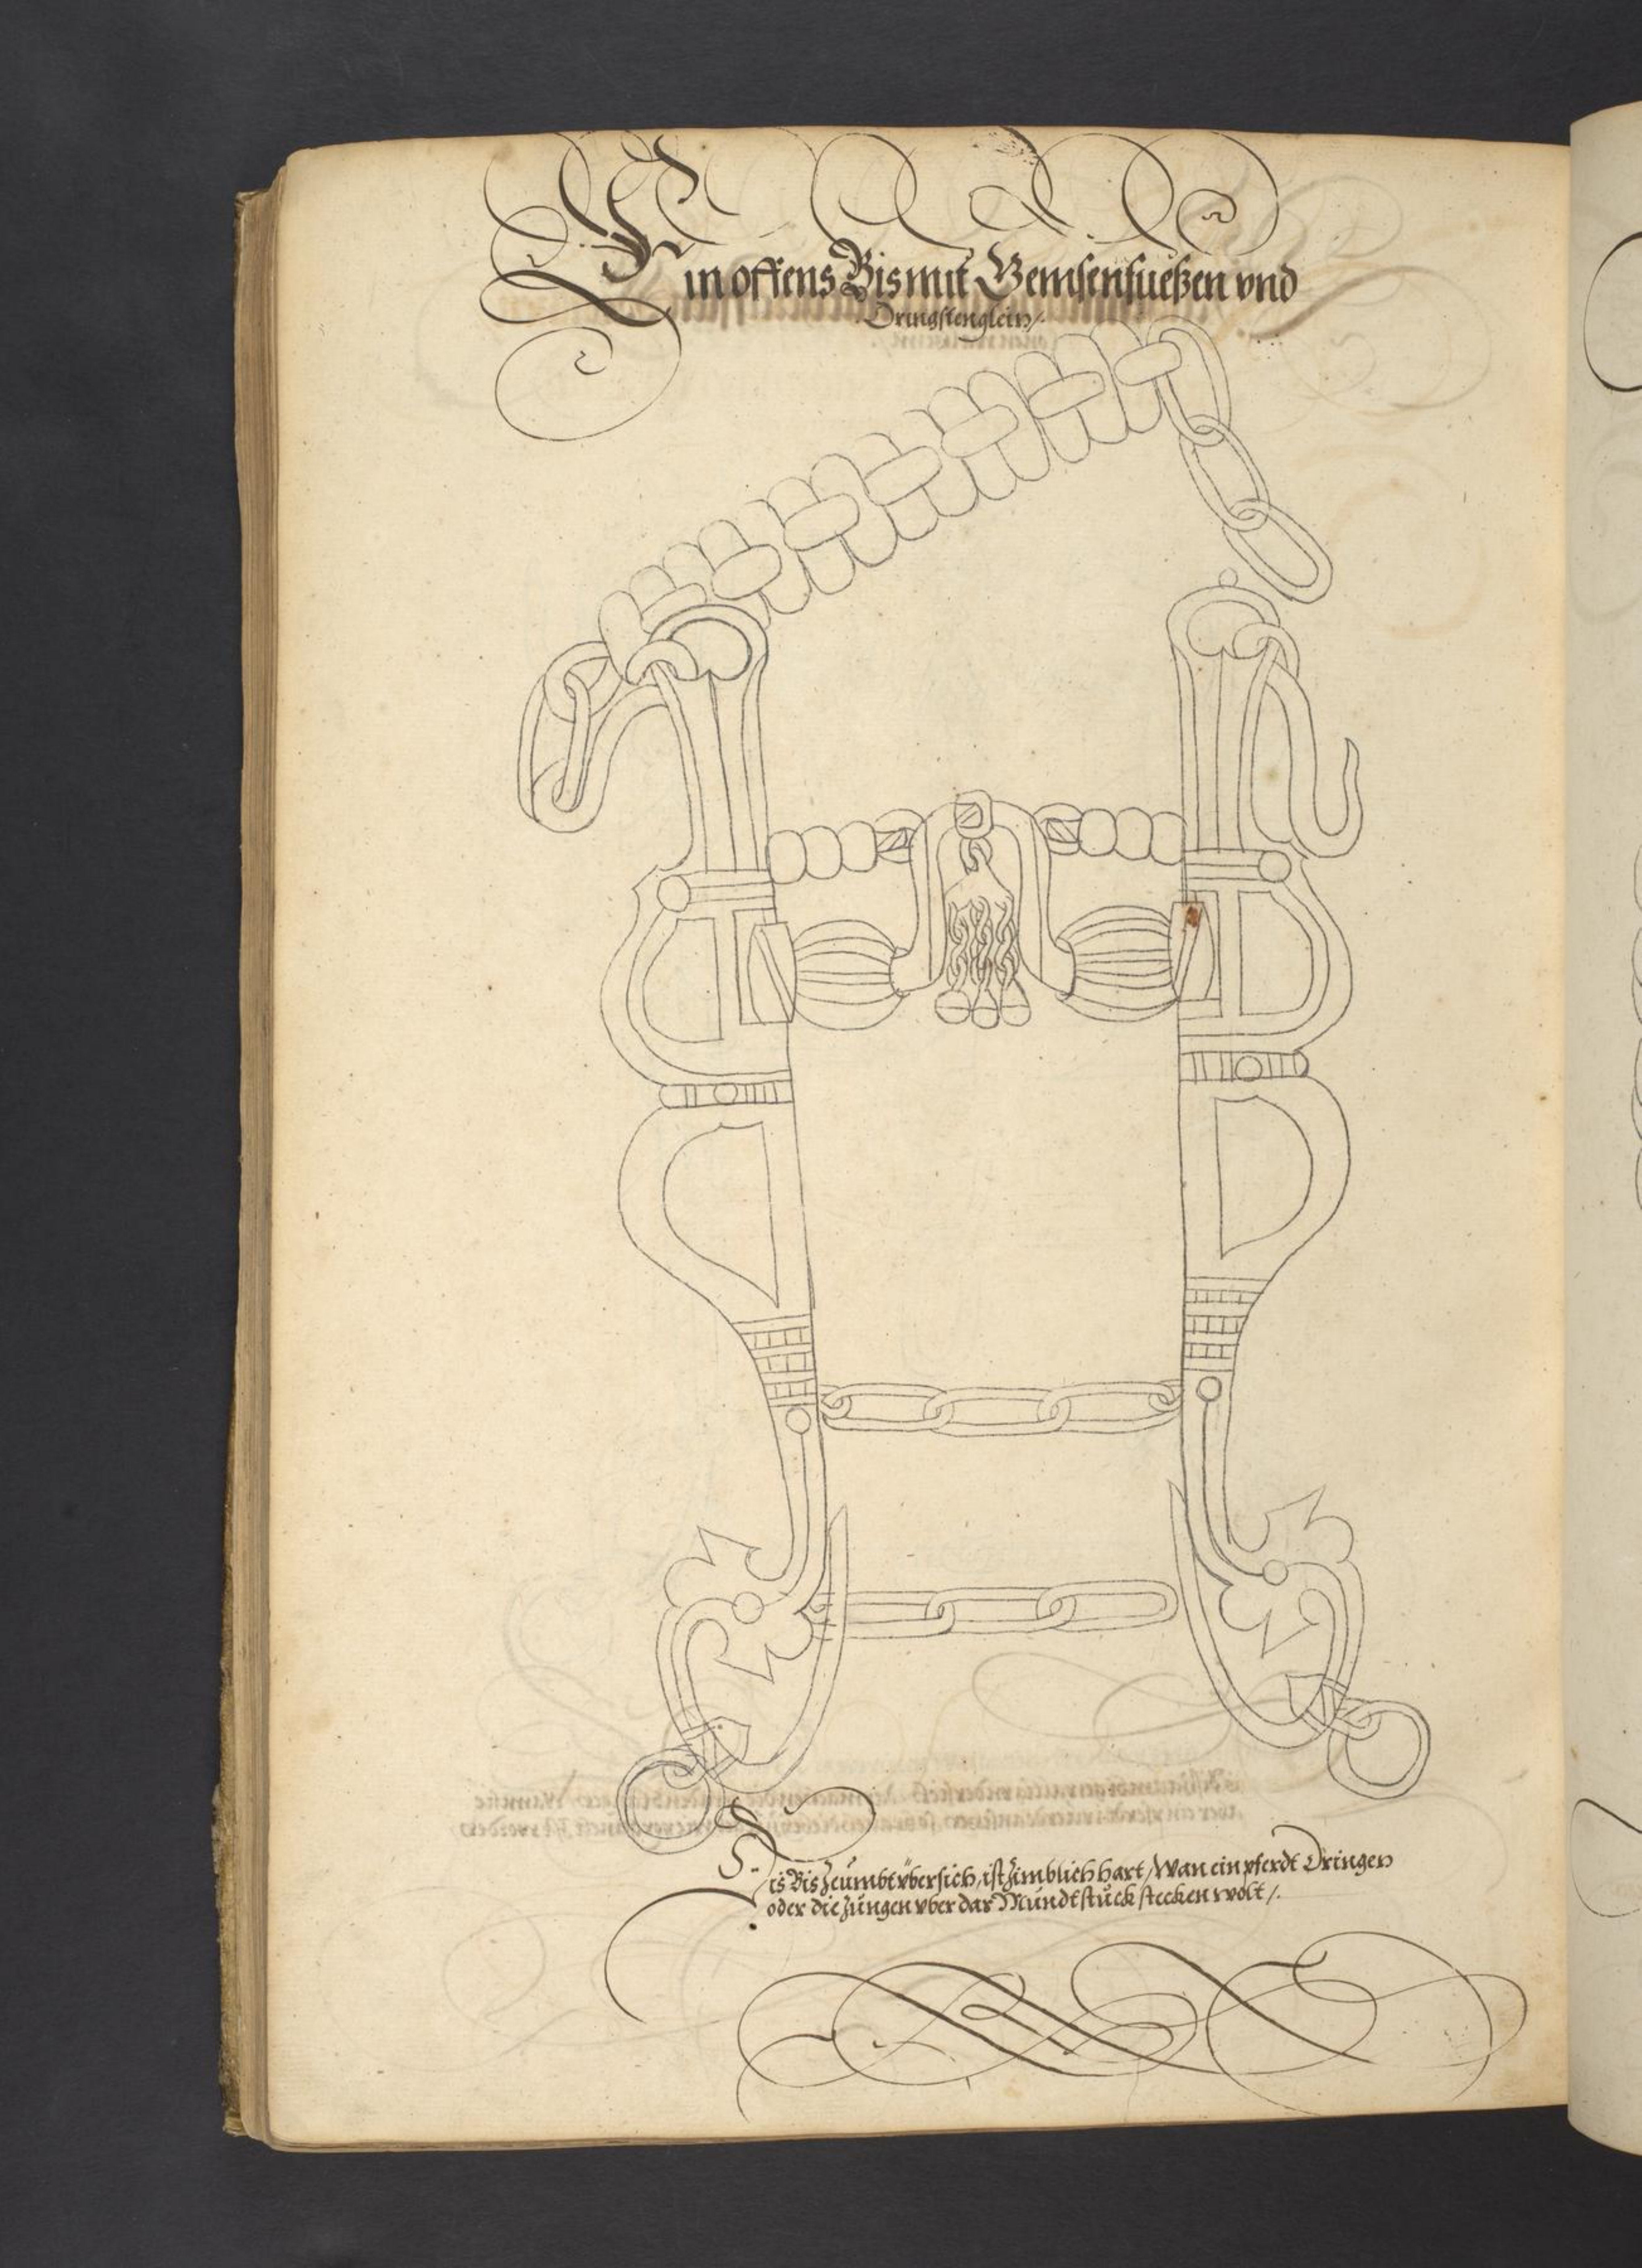 Ein offens Bis mit Gemsenfueßen vnd
Dringstenglein /.
Dis Bis zeumbt vbersich, ist zimblich hart / Wan ein pferdt Dringen
oder die zungen vber das Mundtstuck stecken wolt /.